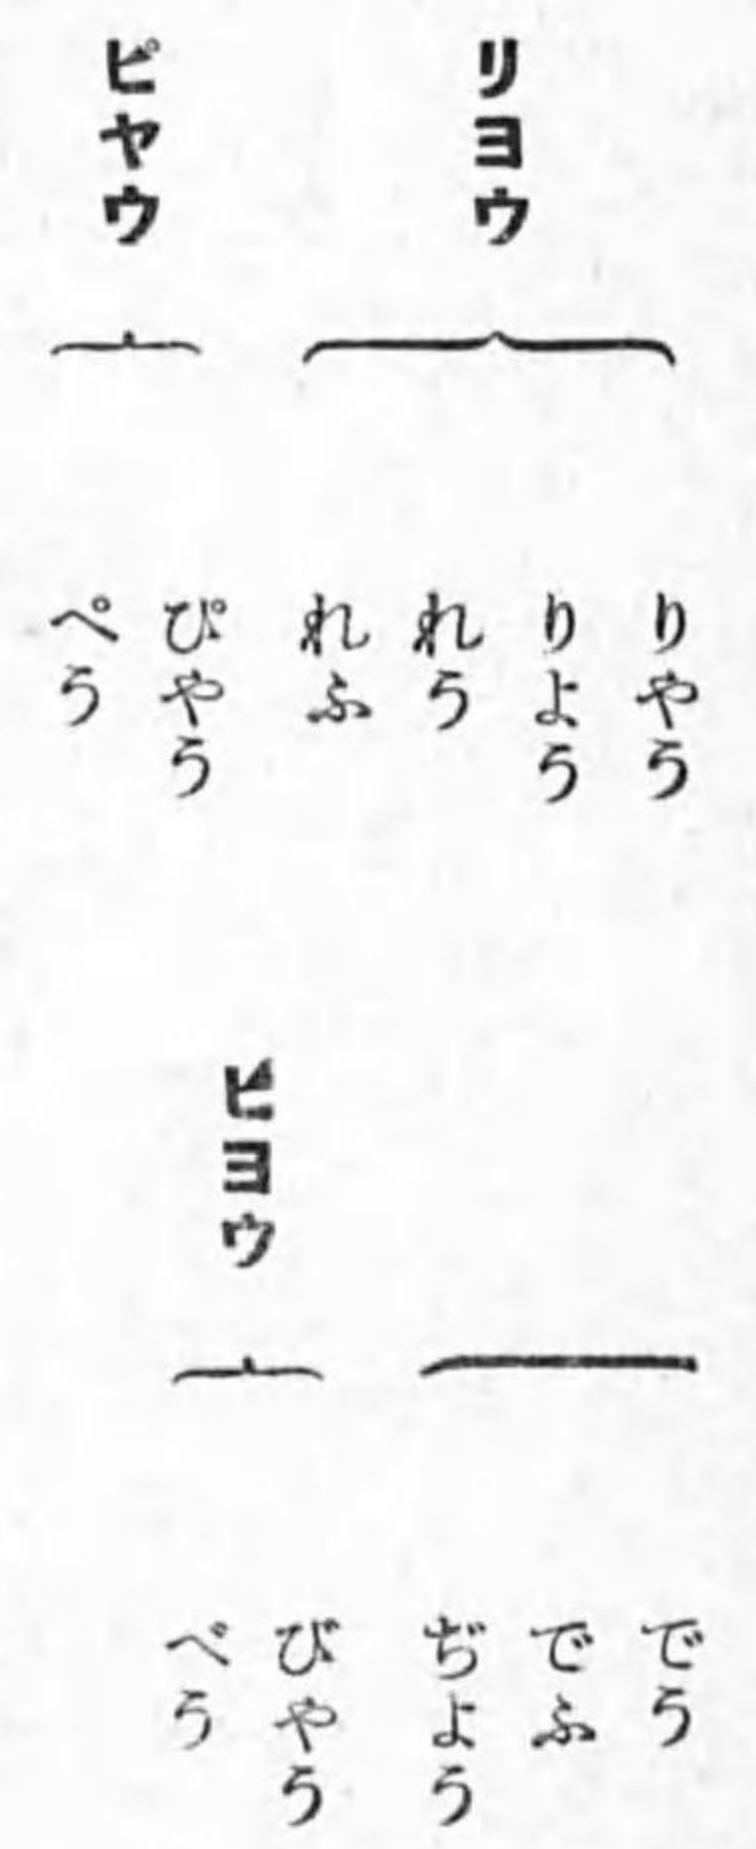 リヨウ
りやう
りよう
れう
れふ
ピヤウ
ぴやう
ぺう
でう
でふ
ぢよう
ビヨウ
びやう
べう